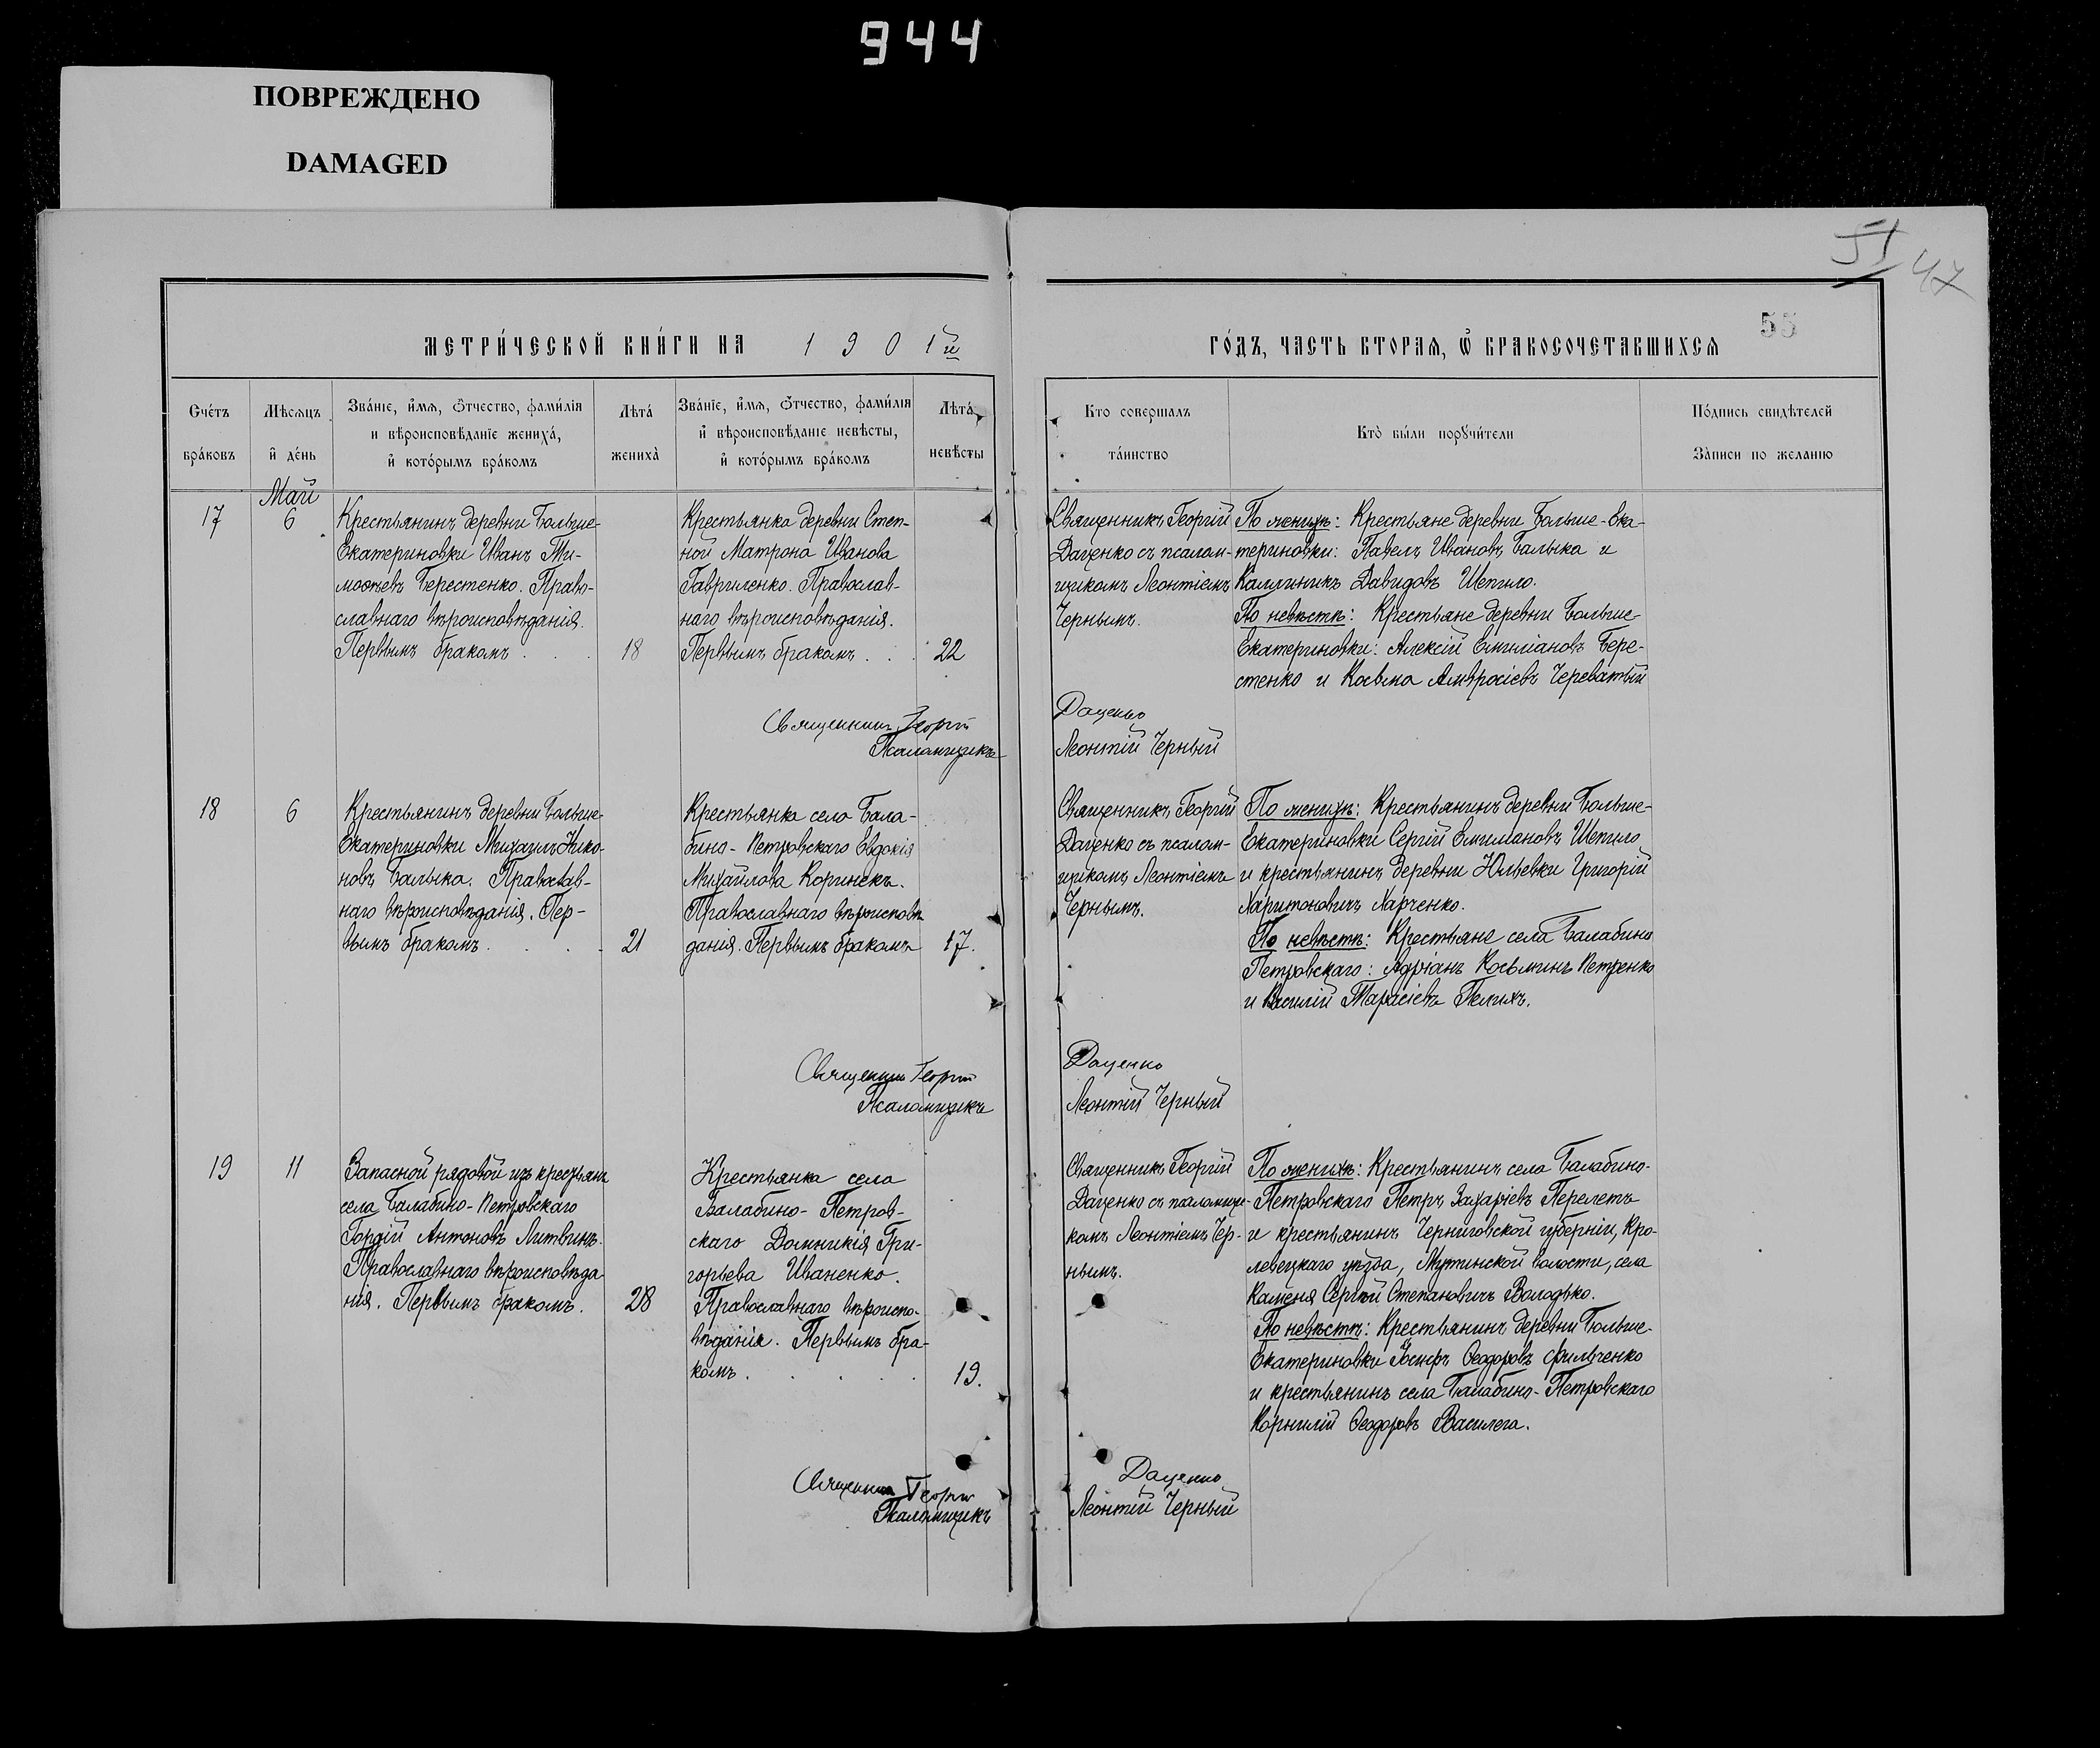 944
ПОВРЕЖДЕНО
DAMAGED
51
47
55
МЕТРИ́ЧЕСКОЙ КНИ́ГИ НА 1901й
ГО́ДЪ, ЧАСТЬ ВТОРАѦ, Ѡ҆ БРАКОСОЧЕТАВШИХСѦ
Сче́тъ бра́ковъ
Мѣсѧцъ и҆ де́нь
Зва́нїе, и҆́мѧ, ѻ҆́тчество, фами́лїѧ
и вѣроисповѣ́данїе жениха́,
и҆ кото́рымъ бра́комъ
Лѣта́ жениха̀
Зва́нїе, и҆́мѧ, ѻ҆́тчество, фами́лїѧ
и҆ вѣроисповѣ́данїе невѣ́сты,
и҆ кото́рымъ бра́комъ
Лѣта́ невѣ́сты
Кто соверша́лъ
та́инство
Кто̀ бы́ли порꙋчи́тели
По́дпись свидѣ́телей
За́писи по жела́нїю
Май
17
6
Крестьянинъ деревни Больше-
Екатериновки Иванъ Ти-
моѳеевъ Берестенко. Право-
славнаго вѣроисповѣданія.
Первымъ бракомъ . . .
18
Крестьянка деревни Степ-
ной Матрона Иванова
Гавриленко. Православ-
наго вѣроисповѣданія.
Первымъ бракомъ . . .
22
Священникъ Георгій
Даценко съ псалом-
щикомъ Леонтіемъ
Чернымъ.
По женихѣ: Крестьяне деревни Больше-Ека-
териновки: Павелъ Ивановъ Балыка и
Каллиникъ Давидовъ Шепило.
По невѣстѣ: Крестьяне деревни Больше-
Екатериновки: Алексій Емиліановъ Бере-
стенко и Косьма Амвросіевъ Череватый
Священникъ Георгій Даценко
Псаломщикъ Леонтій Черный
18
6
Крестьянинъ деревни Больше-
Екатериновки Михаилъ Нико-
новъ Балыка. Православ-
наго вѣроисповѣданія. Пер-
вымъ бракомъ . . . .
21
Крестьянка села Бала-
бино-Петровскаго Евдокія
Михайлова Коринекъ.
Православнаго вѣроисповѣ
данія. Первымъ бракомъ
17.
Священникъ Георгій
Даценко съ псалом-
щикомъ Леонтіемъ
Чернымъ.
По женихѣ: Крестьянинъ деревни Больше-
Екатериновки Сергій Емиліановъ Шепило
и крестьянинъ деревни Юльевки Григорій
Харитоновичъ Харченко.
По невѣстѣ: Крестьяне села Балабино
Петровскаго: Адріанъ Косьминъ Петренко
и Василій Тарасіевъ Пелихъ.
Священникъ Георгій Даценко
Псаломщикъ Леонтій Черный
19
11
Запасной рядовой изъ крестьянъ
села Балабино-Петровскаго
Гордій Антоновъ Литвинъ.
Православнаго вѣроисповѣда
нія. Первымъ бракомъ.
28
Крестьянка села
Балабино-Петров-
скаго Домникія Гри-
горьева Иваненко.
Православнаго вѣроиспо-
вѣданія. Первымъ бра-
комъ . . . . .
19.
Священникъ Георгій
Даценко съ псаломщи-
комъ Леонтіемъ Чер-
нымъ.
По женихѣ: Крестьянинъ села Балабино-
Петровскаго Петръ Захаріевъ Перелетъ
и крестьянинъ Черниговской губерніи, Кро-
левецкаго уѣзда, Мутинской волости, села
Каменя Сергѣй Степановичъ Володько.
По невѣстѣ: Крестьянинъ деревни Больше-
Екатериновки Іосифъ Ѳеодоровъ Фильченко
и крестьянинъ села Балабино-Петровскаго
Корнилій Ѳеодоровъ Василега.
Священникъ Георгій Даценко
Псаломщикъ Леонтій Черный